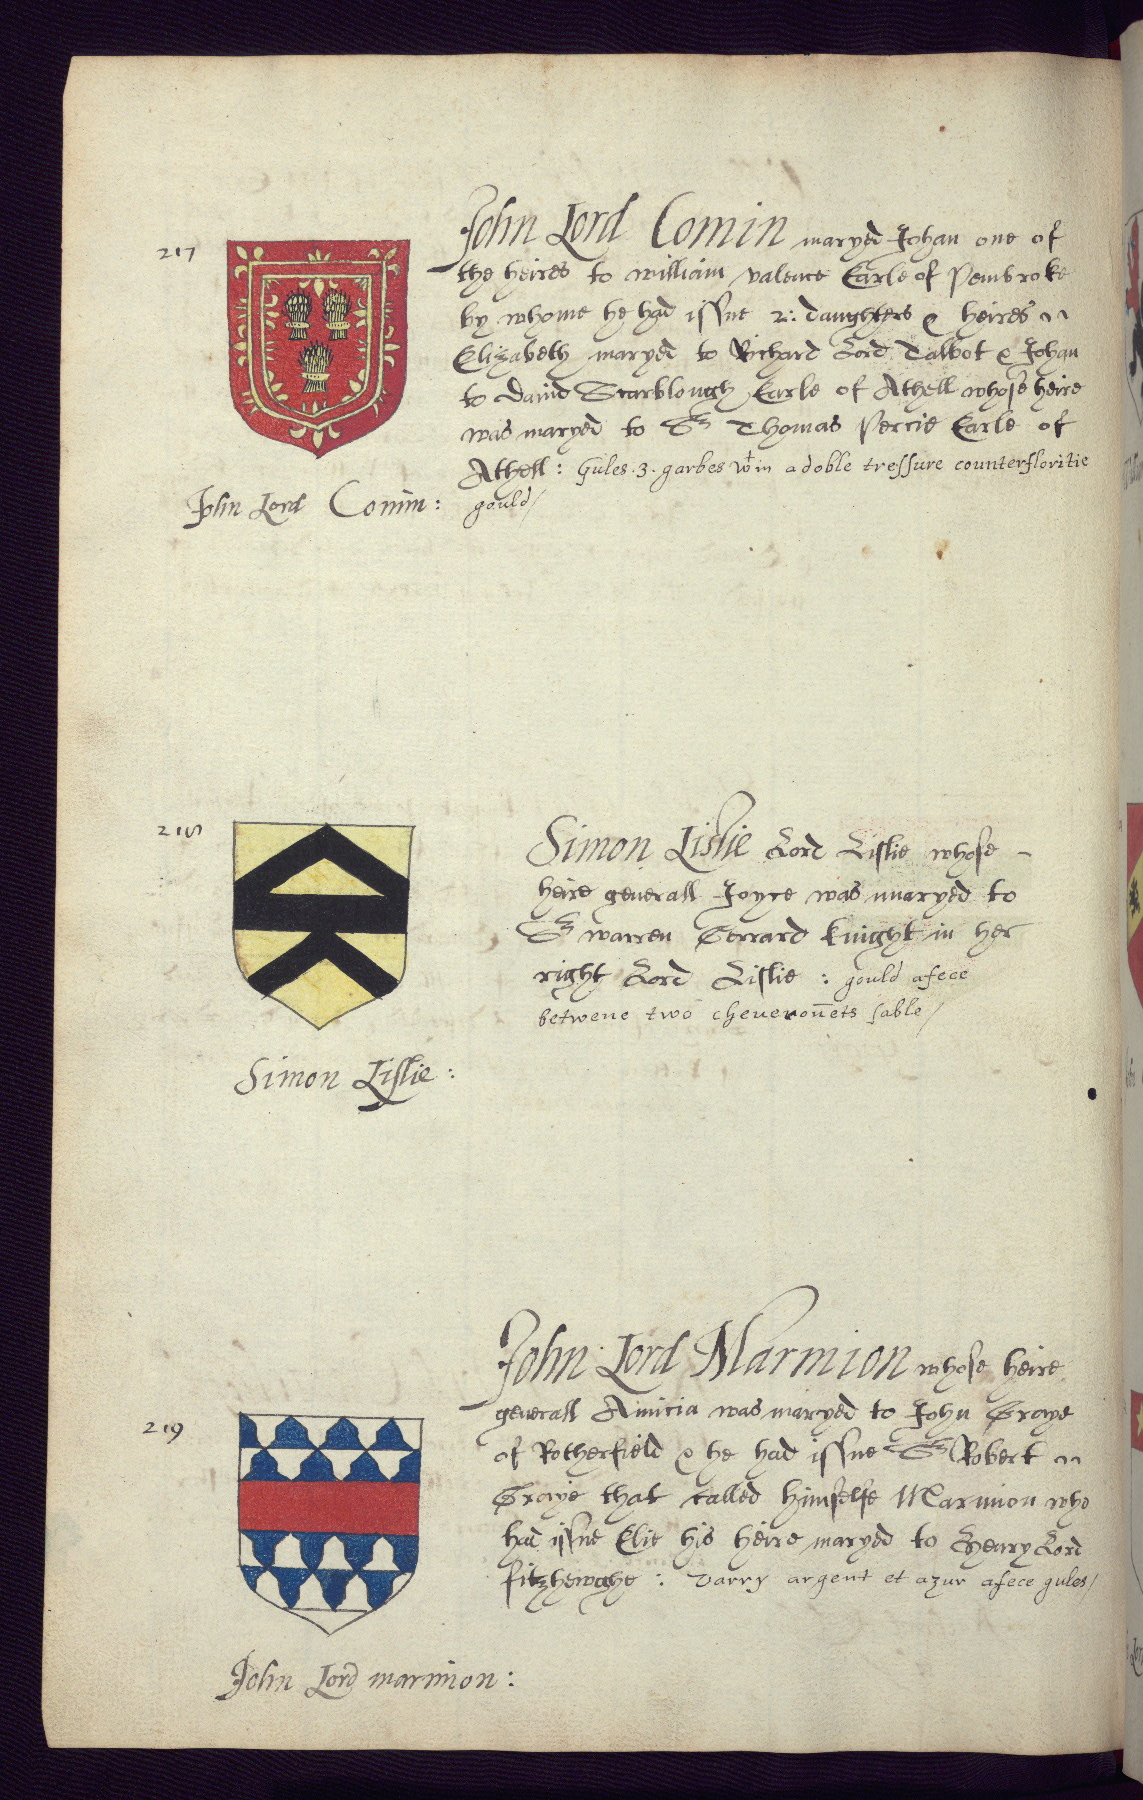 217
John Lord Comin maryed Johan one of
the heires to william valence Earle of Pembroke
by whome he had issue 2: daughters & heires
Elizabeth maryed to Richard Lord Talbot & Johan
to David Strabloughy Earle of Athell whose heire
was maryed to Sr Thomas Percie Earle of
Athell : Gules . 3 . garbes wtin a doble tressure counterfloritie
gould /
John Lord Comin :
218
Simon Lislie Lord Lislie whose
heire generall Joyce was maryed to
Sr warren Gerrard knight in her
right Lord Lislie : gould a fece
betwene two cheverōnets sable /
Simon Lislie :
219
John Lord Marmion whose heire
generall Amicia was maryed to John Graye
of Rotherfield & he had issue Sr Robert
Graye that called himselfe Marmion who
had issue Elie his heire maryed to Henry Lord
fitzhewghe : varry argent et azur a fece gules /
John Lord marmion :